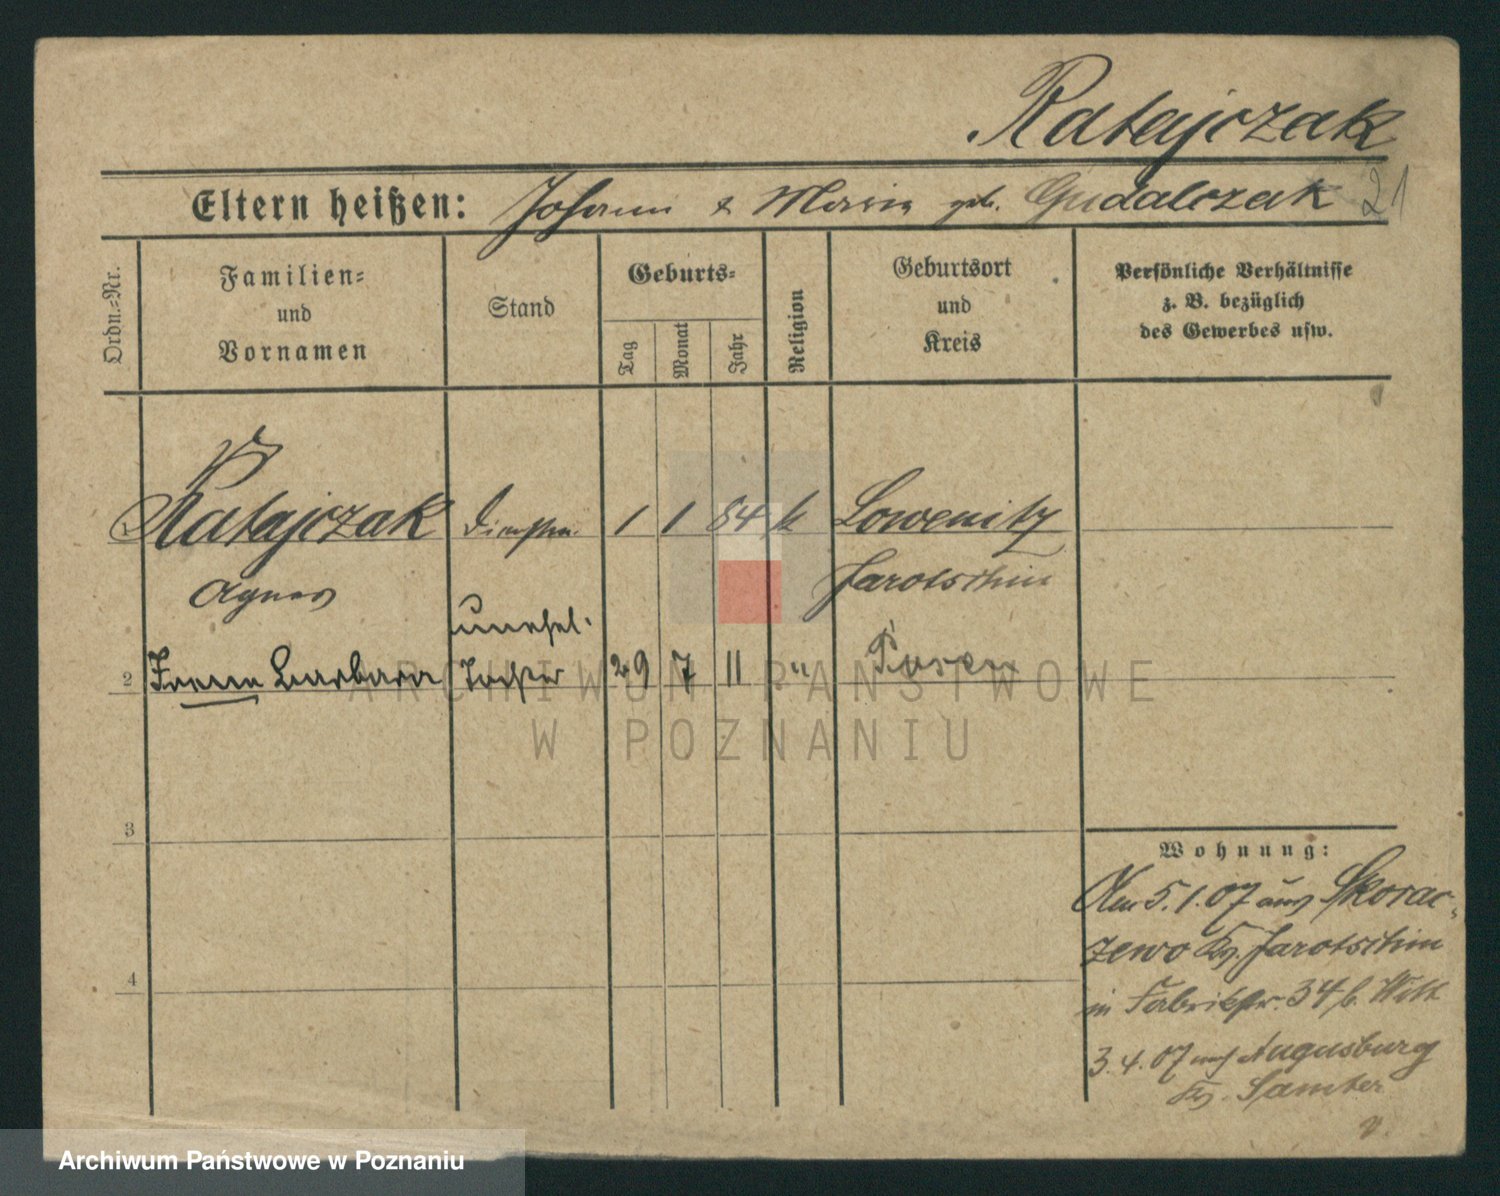 Ratajczak
Eltern heißen: Johann & Maria geb. Gudalczak 21
Ordn.-Nr.
Familien-
und
Vornamen
Stand
Geburts-
Tag
Monat
Jahr
Religion
Geburtsort
und
Kreis
Persönliche Verhältnisse
z. B. bezüglich
des Gewerbes usw.
1 Ratajczak 1 1 84 k Lowenitz
Agnes Jarotschin
unehel.
2 Barbara Tochter 29 7 11 " Posen
3
4
Wohnung:
5.1.07 aus Skorac-
zewo Kr. Jarotschin
in Fabrikstr. 34 b. Witt
3.4.07 nach Augusburg
Kr. Samter
ARCHIWUM PAŃSTWOWE
W POZNANIU
Archiwum Państwowe w Poznaniu